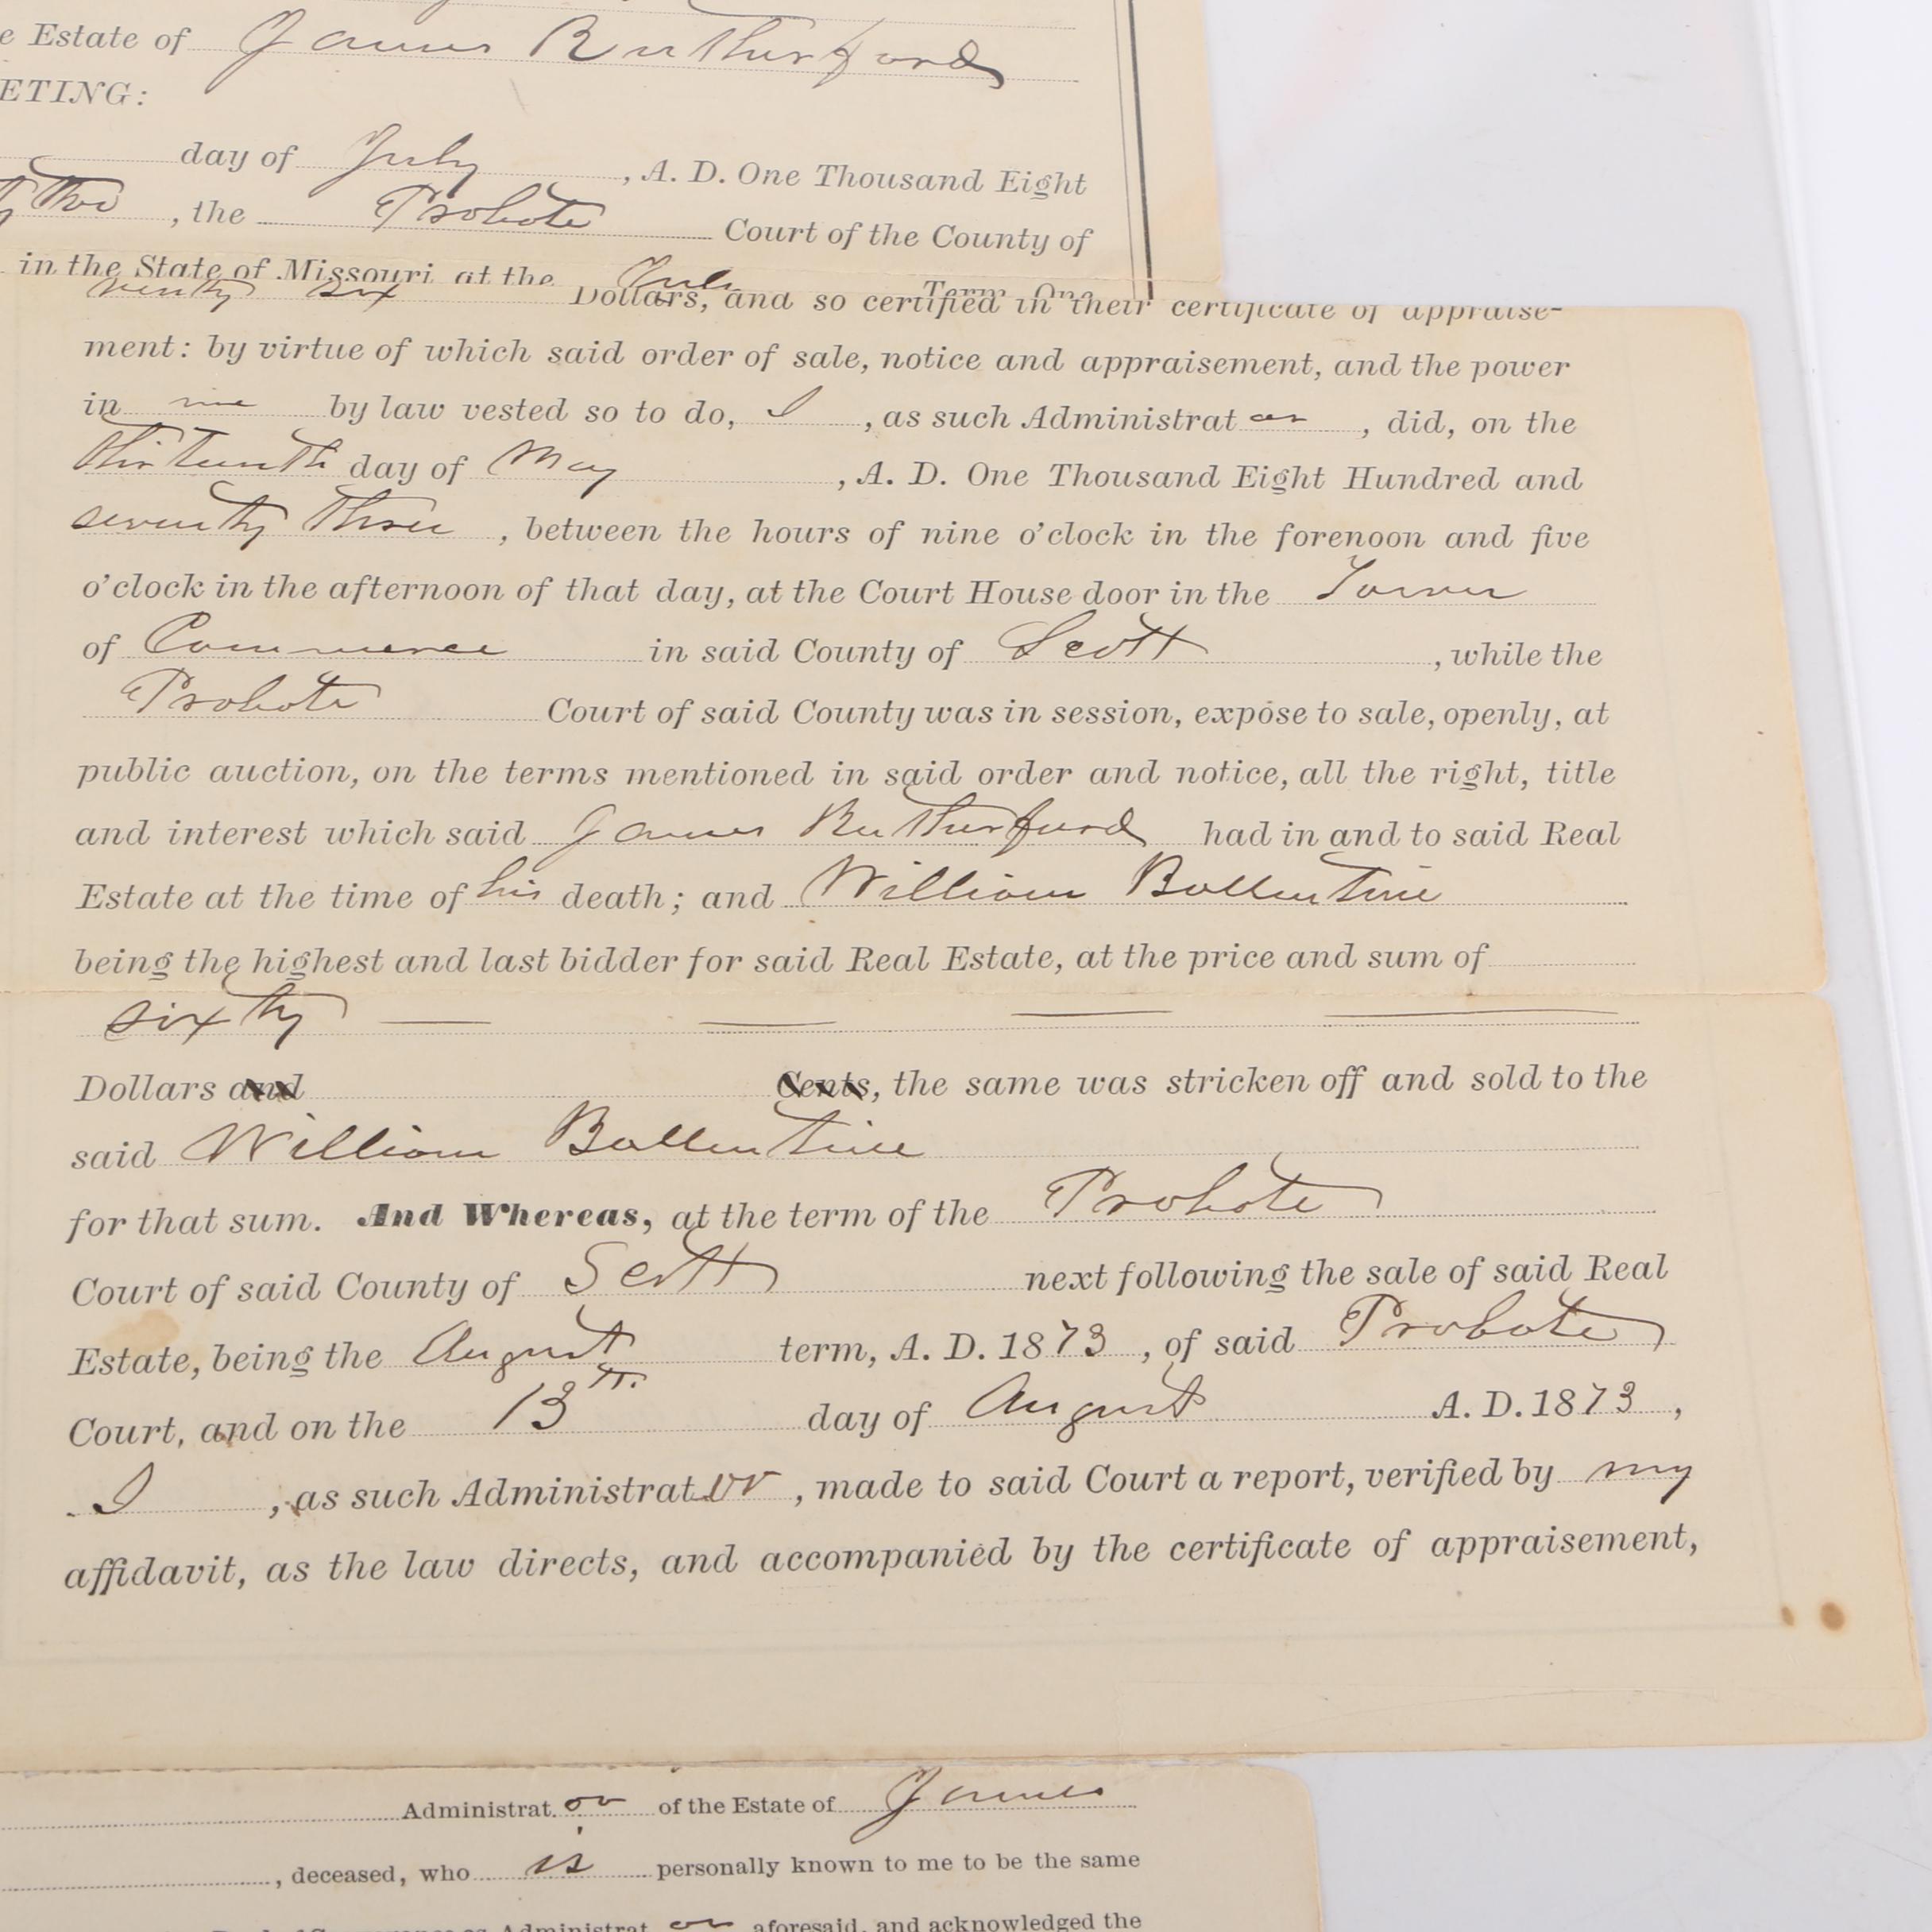 e Estate of James Rutherford
ETING:
day of July, A. D. One Thousand Eight
ty two, the Probate Court of the County of
in the State of Missouri at the July Term One
six Dollars, and so certified in their certificate of appraise-
ment: by virtue of which said order of sale, notice and appraisement, and the power
in me by law vested so to do, I, as such Administrator, did, on the
thirteenth day of May, A. D. One Thousand Eight Hundred and
seventy three, between the hours of nine o'clock in the forenoon and five
o'clock in the afternoon of that day, at the Court House door in the Town
of Commerce in said County of Scott, while the
Probate Court of said County was in session, expose to sale, openly, at
public auction, on the terms mentioned in said order and notice, all the right, title
and interest which said James Rutherford had in and to said Real
Estate at the time of his death; and William Ballentine
being the highest and last bidder for said Real Estate, at the price and sum of
sixty
Dollars and Cents, the same was stricken off and sold to the
said William Ballentine
for that sum. And Whereas, at the term of the Probate
Court of said County of Scott next following the sale of said Real
Estate, being the August term, A. D. 1873, of said Probate
Court, and on the 13th day of August A. D. 1873,
I, as such Administrator, made to said Court a report, verified by my
affidavit, as the law directs, and accompanied by the certificate of appraisement,
Administrator of the Estate of James
, deceased, who is personally known to me to be the same
as Administrator aforesaid, and acknowledged the